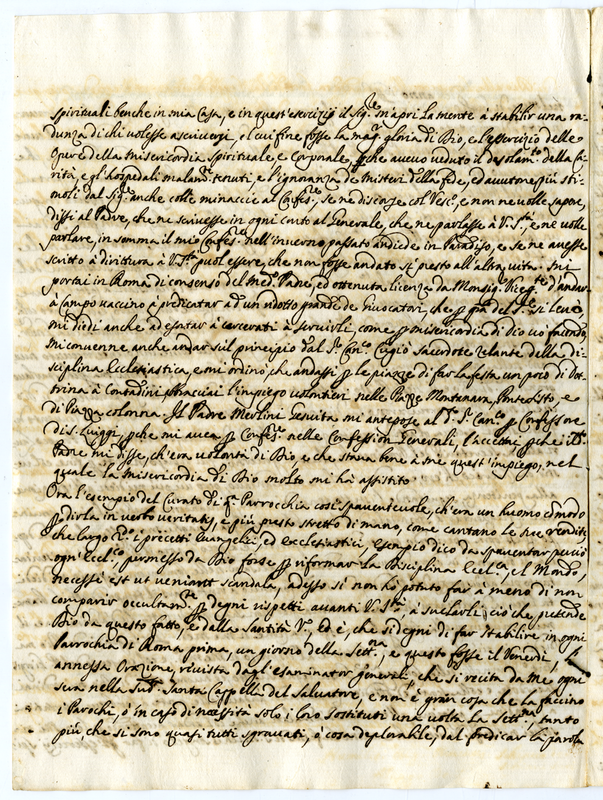 spirituali benche in mia Casa, e in quest'esercizio il Sig.re m'aprì la mente à stabilir una ra-
dunza di chi volesse ascriversi, e lui fine fosse la mag.r gloria di Dio, e l'essercizio delle
Opere della misericordia spirituale e Corporale, perche avevo veduto il desolam.to della ca-
rità, e gl'hospedali malam.te tenuti, e l'ignoranza de Misteri della fede, ed avutone più sti-
moli dal Sig.re anche colle minaccie al Confes.re se ne discorse col Vesc.o, e non ne volle sapere,
dissi al Padre, che ne scrivesse in ogni conto al Generale, che ne parlasse à V. S.tà, e ne volle
parlare, in somma il mio Confes.re nell'inverno passato andiede in Paradiso, e se ne avesse
scritto à diritura à V. S.tà puol essere, che non fosse andato sì presto all'altra vita. Mi
portai in Roma di consenso del med.o Padre, ed ottenuta licenza da Monsig. Viceg.te d'andar
à Campo vaccino à predicar ad un ridotto grande de Giocatori, che per gra del S.re si levò,
mi diedi anche ad esortar à carcerati à servirli, come per misericordia di Dio lo facendo,
mi convenne anche andar sul principio dal S.r Can.co Cupis Sacerdote zelante della di-
sciplina Ecclesiastica, e mi ordinò che andassi per le piazze di far la festa un poco di Dot-
trina à Contadini, abbracciai l'impiego volontieri nelle Piazze Montanara, Pontesisto, e
di Piazza colonna. Il Padre Merlini Gesuita mi antepose al d.o S.r Can.co per Confessore
di S. Luiggi, perche mi avea per Confes.re nelle Confessioni Generali, l'accettai, perche il d.o
Padre mi disse, ch'era volontà di Dio, e che stava bene à me quest'impiego, nel
quale la misericordia di Dio molto mi hà assistito
Ora l'esempio del Curato di q.ta Parrocchia così spaventevole, ch'era un huomo comodo
per dirla in verbo veritatis, e più presto stretto di mano, come cantano le sue rendite
che largo, i precetti Evangelici, ed ecclesiastici, esempio dico da spaventar perciò
ogn'Eccl.co, permesso da Dio forse per riformar la Disciplina Eccl.ca, e'l Mondo,
necesse est ut veniant scandala, adesso si non hò potuto far à meno di non
comparir occultam.te per degni rispetti avanti V. S.tà à svelarli ciò che pretende
Dio da questo fatto, e dalla Santità V.a, ed è, che si degni di far stabilire in ogni
Parrochia di Roma prima, un giorno della Sett.na, e questo fosse il Venerdì,
annessa Orazione, rivista dagl'esaminator generali, che si recita da me ogni
sera nella Sud.a Santa Cappella del Salvatore, e non è gran cosa che la faccino
i Parochi, ò in caso di necessità solo i loro sostituti una volta la Sett.na, tanto
più, che si sono quasi tutti sgravati, ò cosa deplorabile, dal predicar la parola